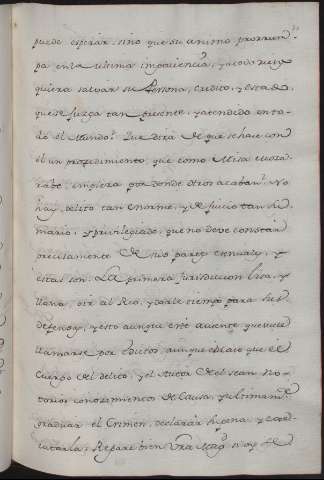 puede esperar, sino que su animo prorrum
pa en la ultima impaciencia, y a todo
quiera salvar su Persona, credito, y estado,
que se juzga tan presente, y atendido en to-
do el Mundo? Que dira de que se hase con
èl un prosedimiento, que como Misa
rabe, empieza por donde otros acaban? No
hay delito tan enorme, y de juicio tan su-
mario, y privilegiado, que no deve constar
precisamente de sus partes esenciales, y
estas son: La primera jurisdiccion
llana, oir al Reo, y darle tiempo para sus
defensas, y esto aunque estè ausente,
llamarse por Edictos, aunque el caso que el
Cuerpo del delito, y el Autor del sean no-
torios conosimientos de Causa, y ultimam.te
graduar el Crimen, declarar la pena, y exe-
cutarla: Repare bien Vra Mag.d